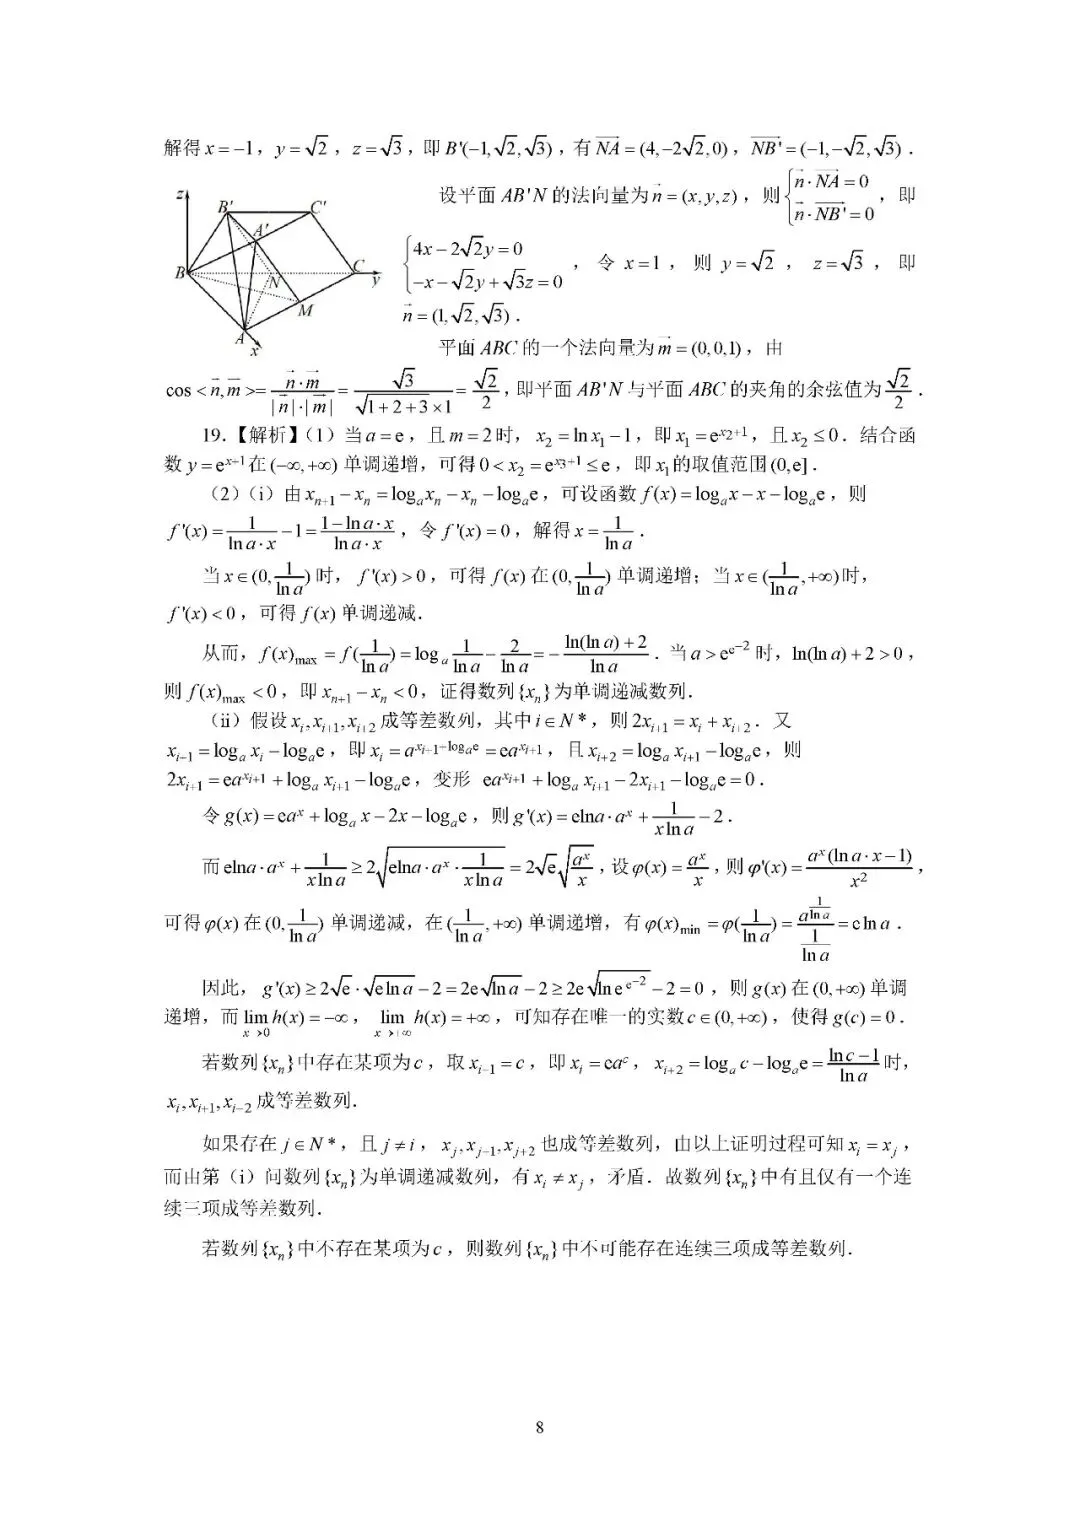 解得 x = −1，y = √2，z = √3，即 B'(−1, √2, √3)，有 NA = (4, −2√2, 0)，NB' = (−1, −√2, √3)．
设平面 AB'N 的法向量为 n = (x, y, z)，则 { n · NA = 0 n · NB' = 0，即
{ 4x − 2√2y = 0 −x − √2y + √3z = 0，令 x = 1，则 y = √2，z = √3，即
n = (1, √2, √3)．
z B' C' A' B C N y M A x
平面 ABC 的一个法向量为 m = (0, 0, 1)，由
cos < n, m >= n · m / | n | · | m | = √3 / √1 + 2 + 3 × 1 = √2 / 2，即平面 AB'N 与平面 ABC 的夹角的余弦值为 √2 / 2．
19．【解析】（1）当 a = e，且 m = 2 时，x₂ = ln x₁ − 1，即 x₁ = e^(x₂+1)，且 x₂ ≤ 0．结合函
数 y = e^(x+1) 在 (−∞, +∞) 单调递增，可得 0 < x₂ = e^(x₃+1) ≤ e，即 x₁ 的取值范围 (0, e]．
（2）（i）由 xₙ₊₁ − xₙ = logₐxₙ − xₙ − logₐe，可设函数 f(x) = logₐx − x − logₐe，则
f'(x) = 1 / (ln a · x) − 1 = (1 − ln a · x) / (ln a · x)，令 f'(x) = 0，解得 x = 1 / ln a．
当 x ∈ (0, 1 / ln a) 时，f'(x) > 0，可得 f(x) 在 (0, 1 / ln a) 单调递增；当 x ∈ (1 / ln a, +∞) 时，
f'(x) < 0，可得 f(x) 单调递减．
从而，f(x)max = f(1 / ln a) = logₐ 1 / ln a − 2 / ln a = − (ln(ln a) + 2) / ln a．当 a > e^(e^(−2)) 时，ln(ln a) + 2 > 0，
则 f(x)max < 0，即 xₙ₊₁ − xₙ < 0，证得数列 {xₙ} 为单调递减数列．
（ii）假设 xᵢ, xᵢ₊₁, xᵢ₊₂ 成等差数列，其中 i ∈ N *，则 2xᵢ₊₁ = xᵢ + xᵢ₊₂．又
xᵢ₊₁ = logₐ xᵢ − logₐe，即 xᵢ = a^(xᵢ₊₁+logₐe) = ea^(xᵢ₊₁)，且 xᵢ₊₂ = logₐ xᵢ₊₁ − logₐe，则
2xᵢ₊₁ = ea^(xᵢ₊₁) + logₐ xᵢ₊₁ − logₐe，变形 ea^(xᵢ₊₁) + logₐ xᵢ₊₁ − 2xᵢ₊₁ − logₐe = 0．
令 g(x) = ea^x + logₐ x − 2x − logₐe，则 g'(x) = elna · a^x + 1 / (x ln a) − 2．
而 elna · a^x + 1 / (x ln a) ≥ 2√(elna · a^x · 1 / (x ln a)) = 2√e √(a^x / x)，设 φ(x) = a^x / x，则 φ'(x) = a^x (ln a · x − 1) / x²，
可得 φ(x) 在 (0, 1 / ln a) 单调递减，在 (1 / ln a, +∞) 单调递增，有 φ(x)min = φ(1 / ln a) = a^(1 / ln a) / (1 / ln a) = e ln a．
因此，g'(x) ≥ 2√e · √(e ln a) − 2 = 2e√(ln a) − 2 ≥ 2e√(ln e^(e^(−2))) − 2 = 0，则 g(x) 在 (0, +∞) 单调
递增，而 lim x→0 h(x) = −∞，lim x→+∞ h(x) = +∞，可知存在唯一的实数 c ∈ (0, +∞)，使得 g(c) = 0．
若数列 {xₙ} 中存在某项为 c，取 xᵢ₊₁ = c，即 xᵢ = ea^c，xᵢ₊₂ = logₐ c − logₐe = (ln c − 1) / ln a 时，
xᵢ, xᵢ₊₁, xᵢ₊₂ 成等差数列．
如果存在 j ∈ N *，且 j ≠ i，xⱼ, xⱼ₊₁, xⱼ₊₂ 也成等差数列，由以上证明过程可知 xᵢ = xⱼ，
而由第（i）问数列 {xₙ} 为单调递减数列，有 xᵢ ≠ xⱼ，矛盾．故数列 {xₙ} 中有且仅有一个连
续三项成等差数列．
若数列 {xₙ} 中不存在某项为 c，则数列 {xₙ} 中不可能存在连续三项成等差数列．
8